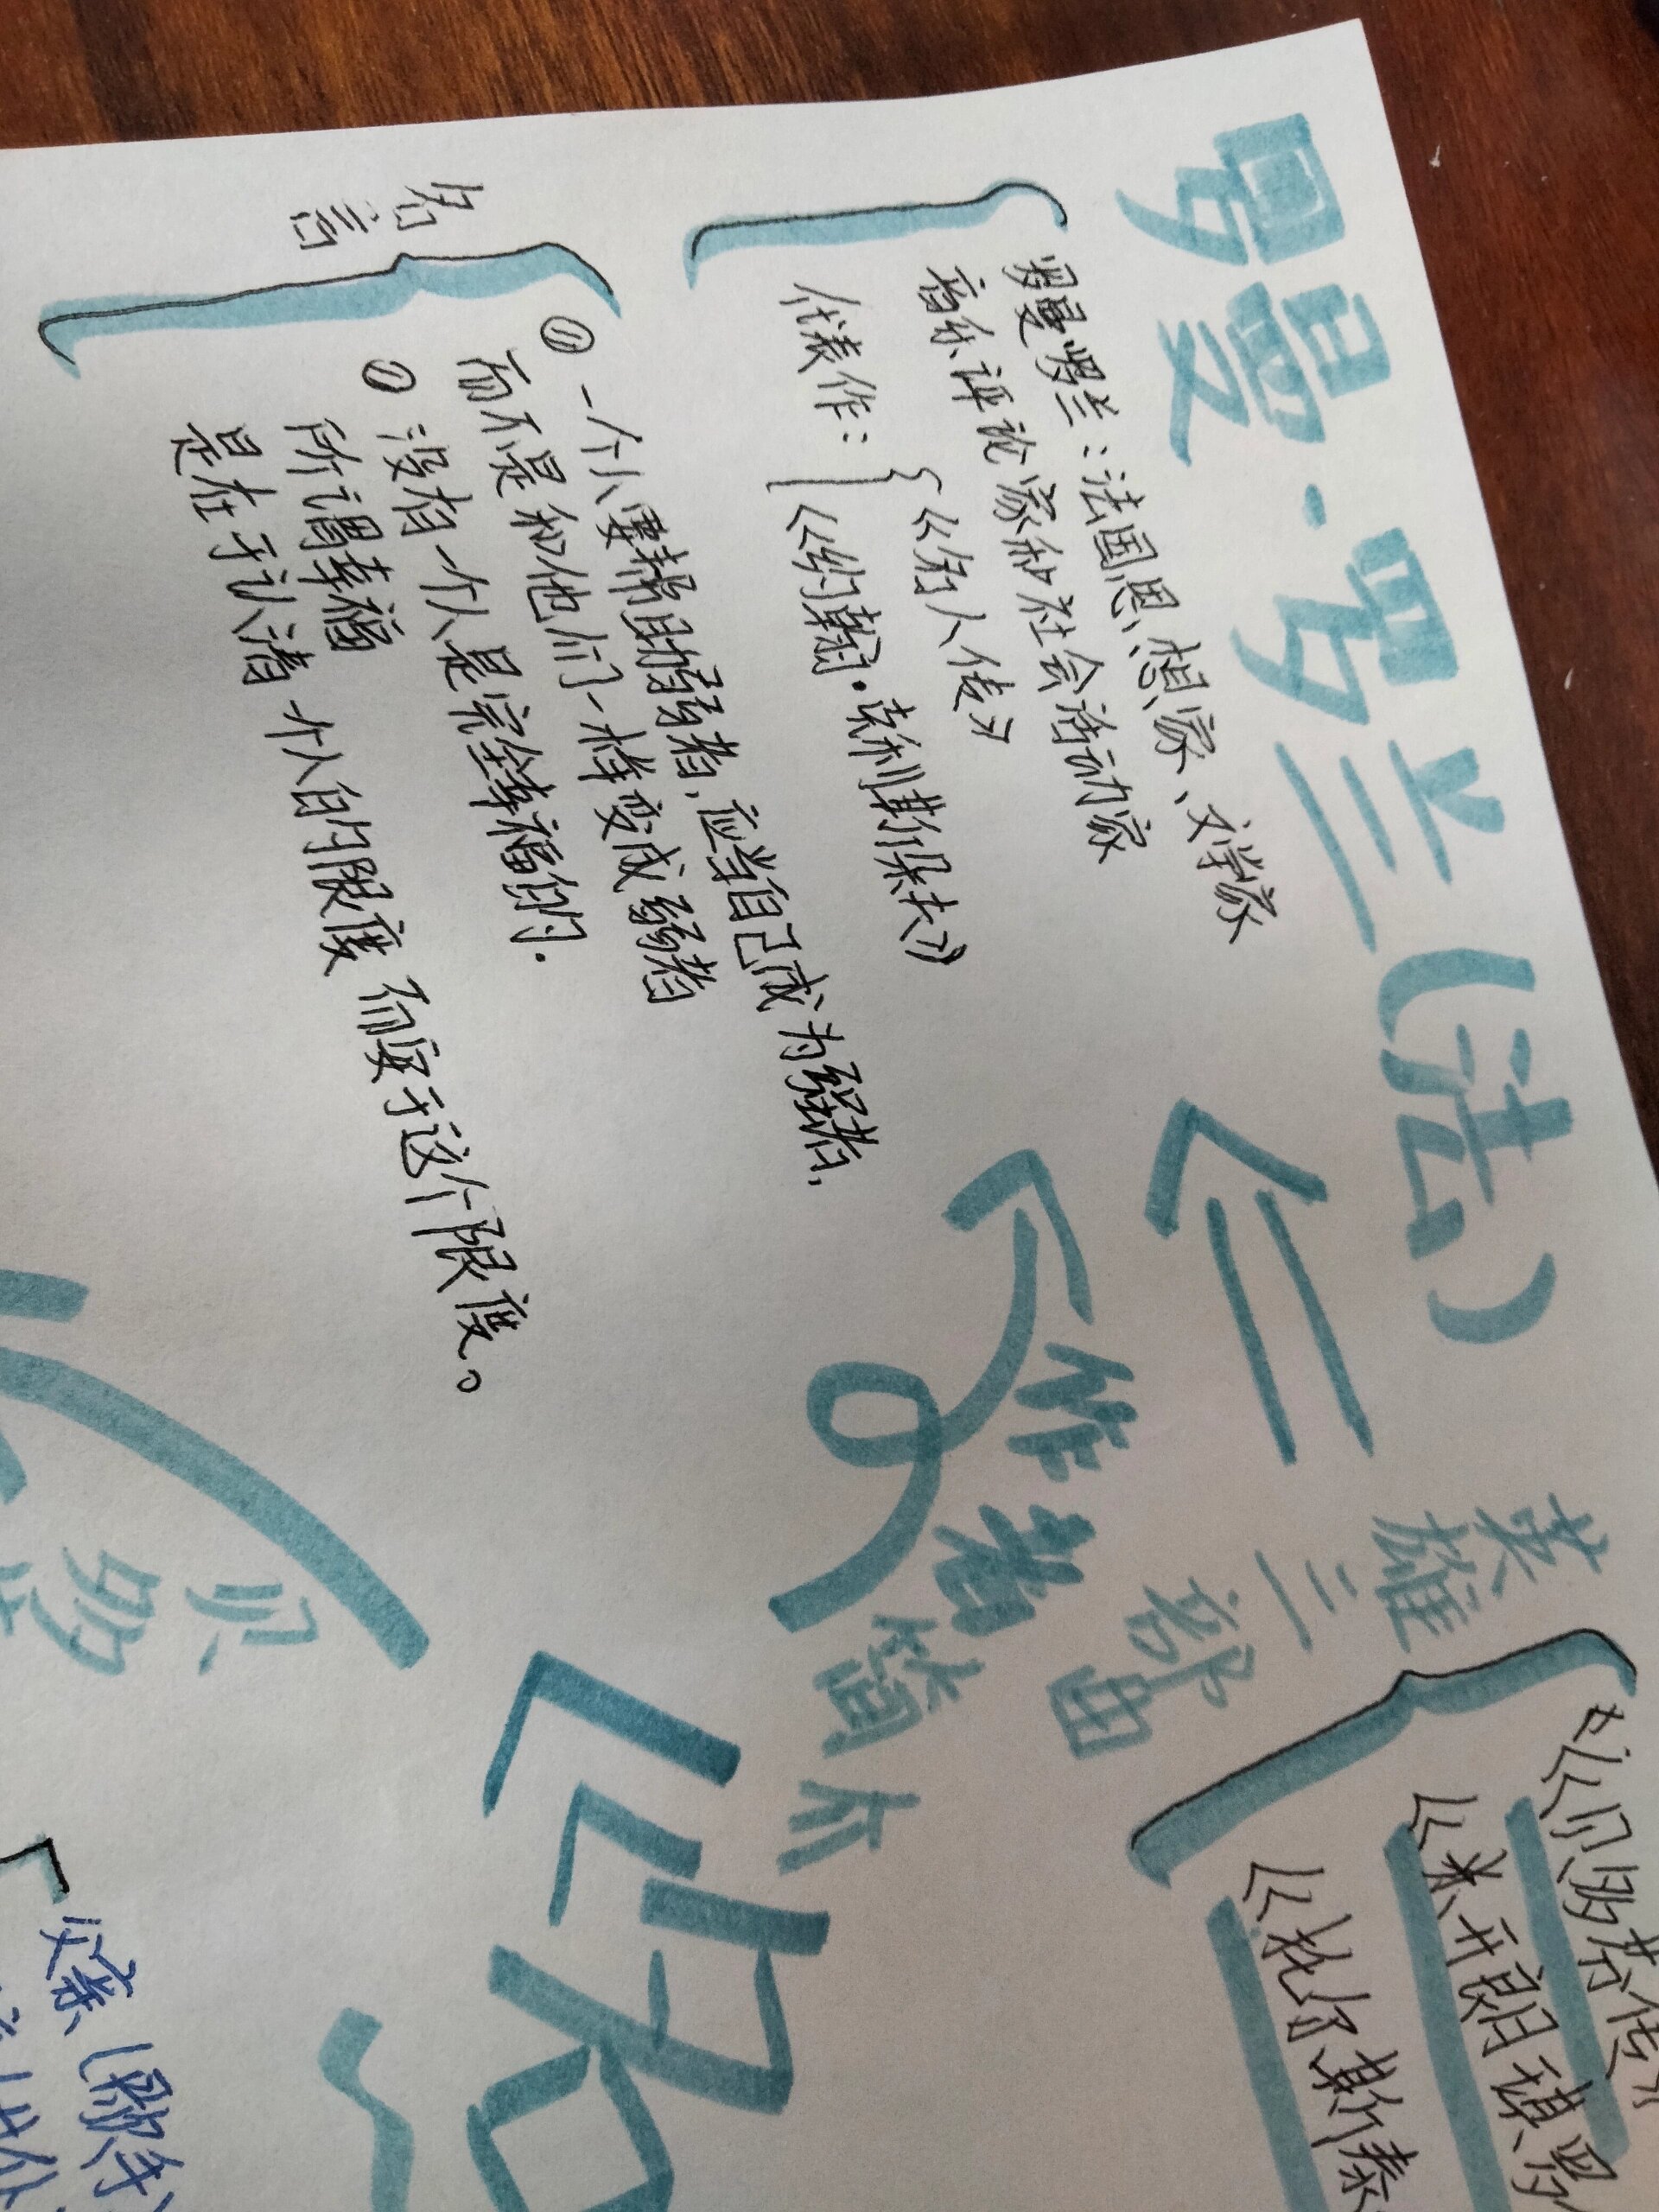 罗曼·罗兰(法)
罗曼罗兰：法国思想家、文学家
音乐评论家和社会活动家
代表作：
《名人传》
《约翰·克利斯朵夫》
名言
① 一个人要帮助弱者，应当自己成为强者，
而不是和他们一样变成弱者
② 没有一个人是完全幸福的.
所谓幸福
是在于认清一个人的限度 而安于这个限度。
作者简介
英雄
三
部曲
《贝多芬传》
《米开朗琪罗
《托尔斯泰
《名
贝
多
父亲（歌手